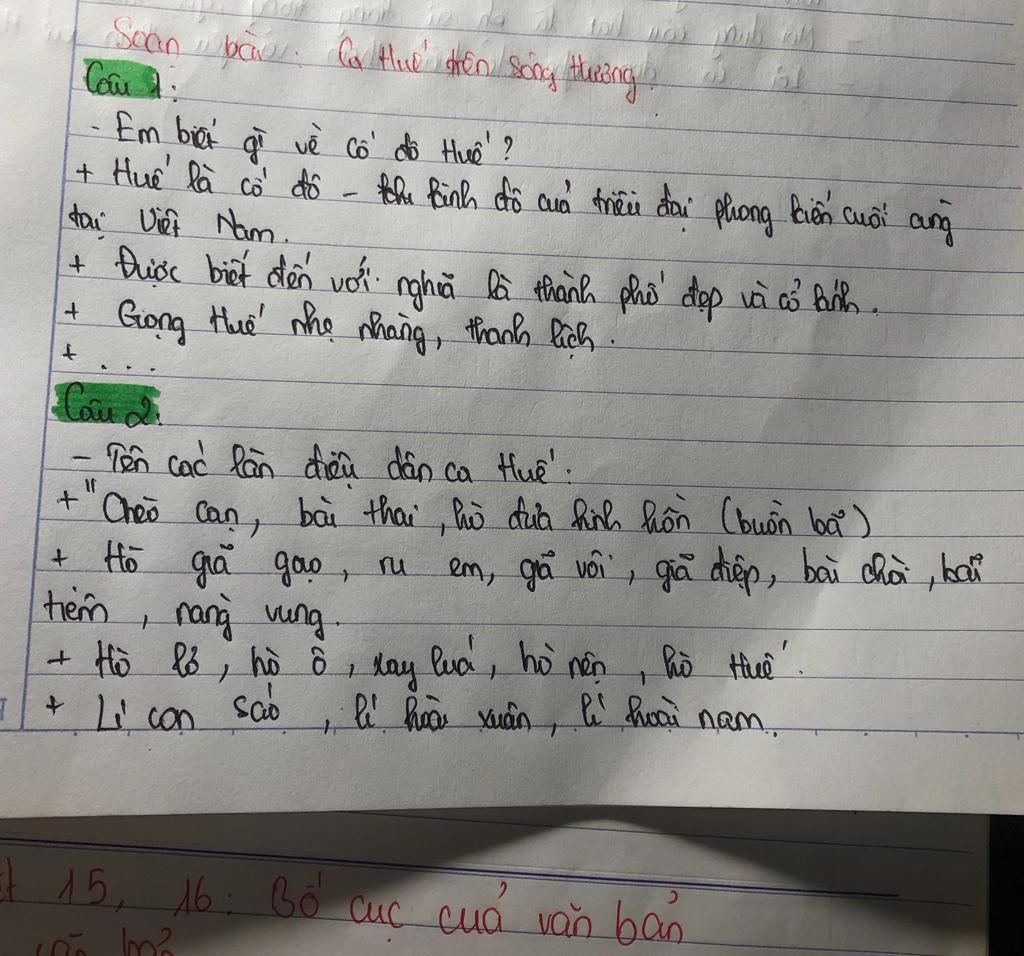 Soạn bài: Ca Huế trên sông Hương
Câu 1:
- Em biết gì về cố đô Huế?
+ Huế là cố đô - kinh đô của triều đại phong kiến cuối cùng
tại Việt Nam.
+ Được biết đến với nghĩa là thành phố đẹp và cổ kính.
+ Giọng Huế nhẹ nhàng, thanh lịch.
+ ...
Câu 2:
- Tên các làn điệu dân ca Huế:
+ "Chèo cạn, bài thai, hò đưa linh hồn (buồn bã)
+ Hò giã gạo, ru em, giã vôi, giã điệp, bài chòi, bài
tiệm, nàng vung.
+ Hò lơ, hò ô, xay lúa, hò nện, hò Huế.
+ Lí con sáo, lí hoài xuân, lí hoài nam.
15, 16: Bố cục của văn bản